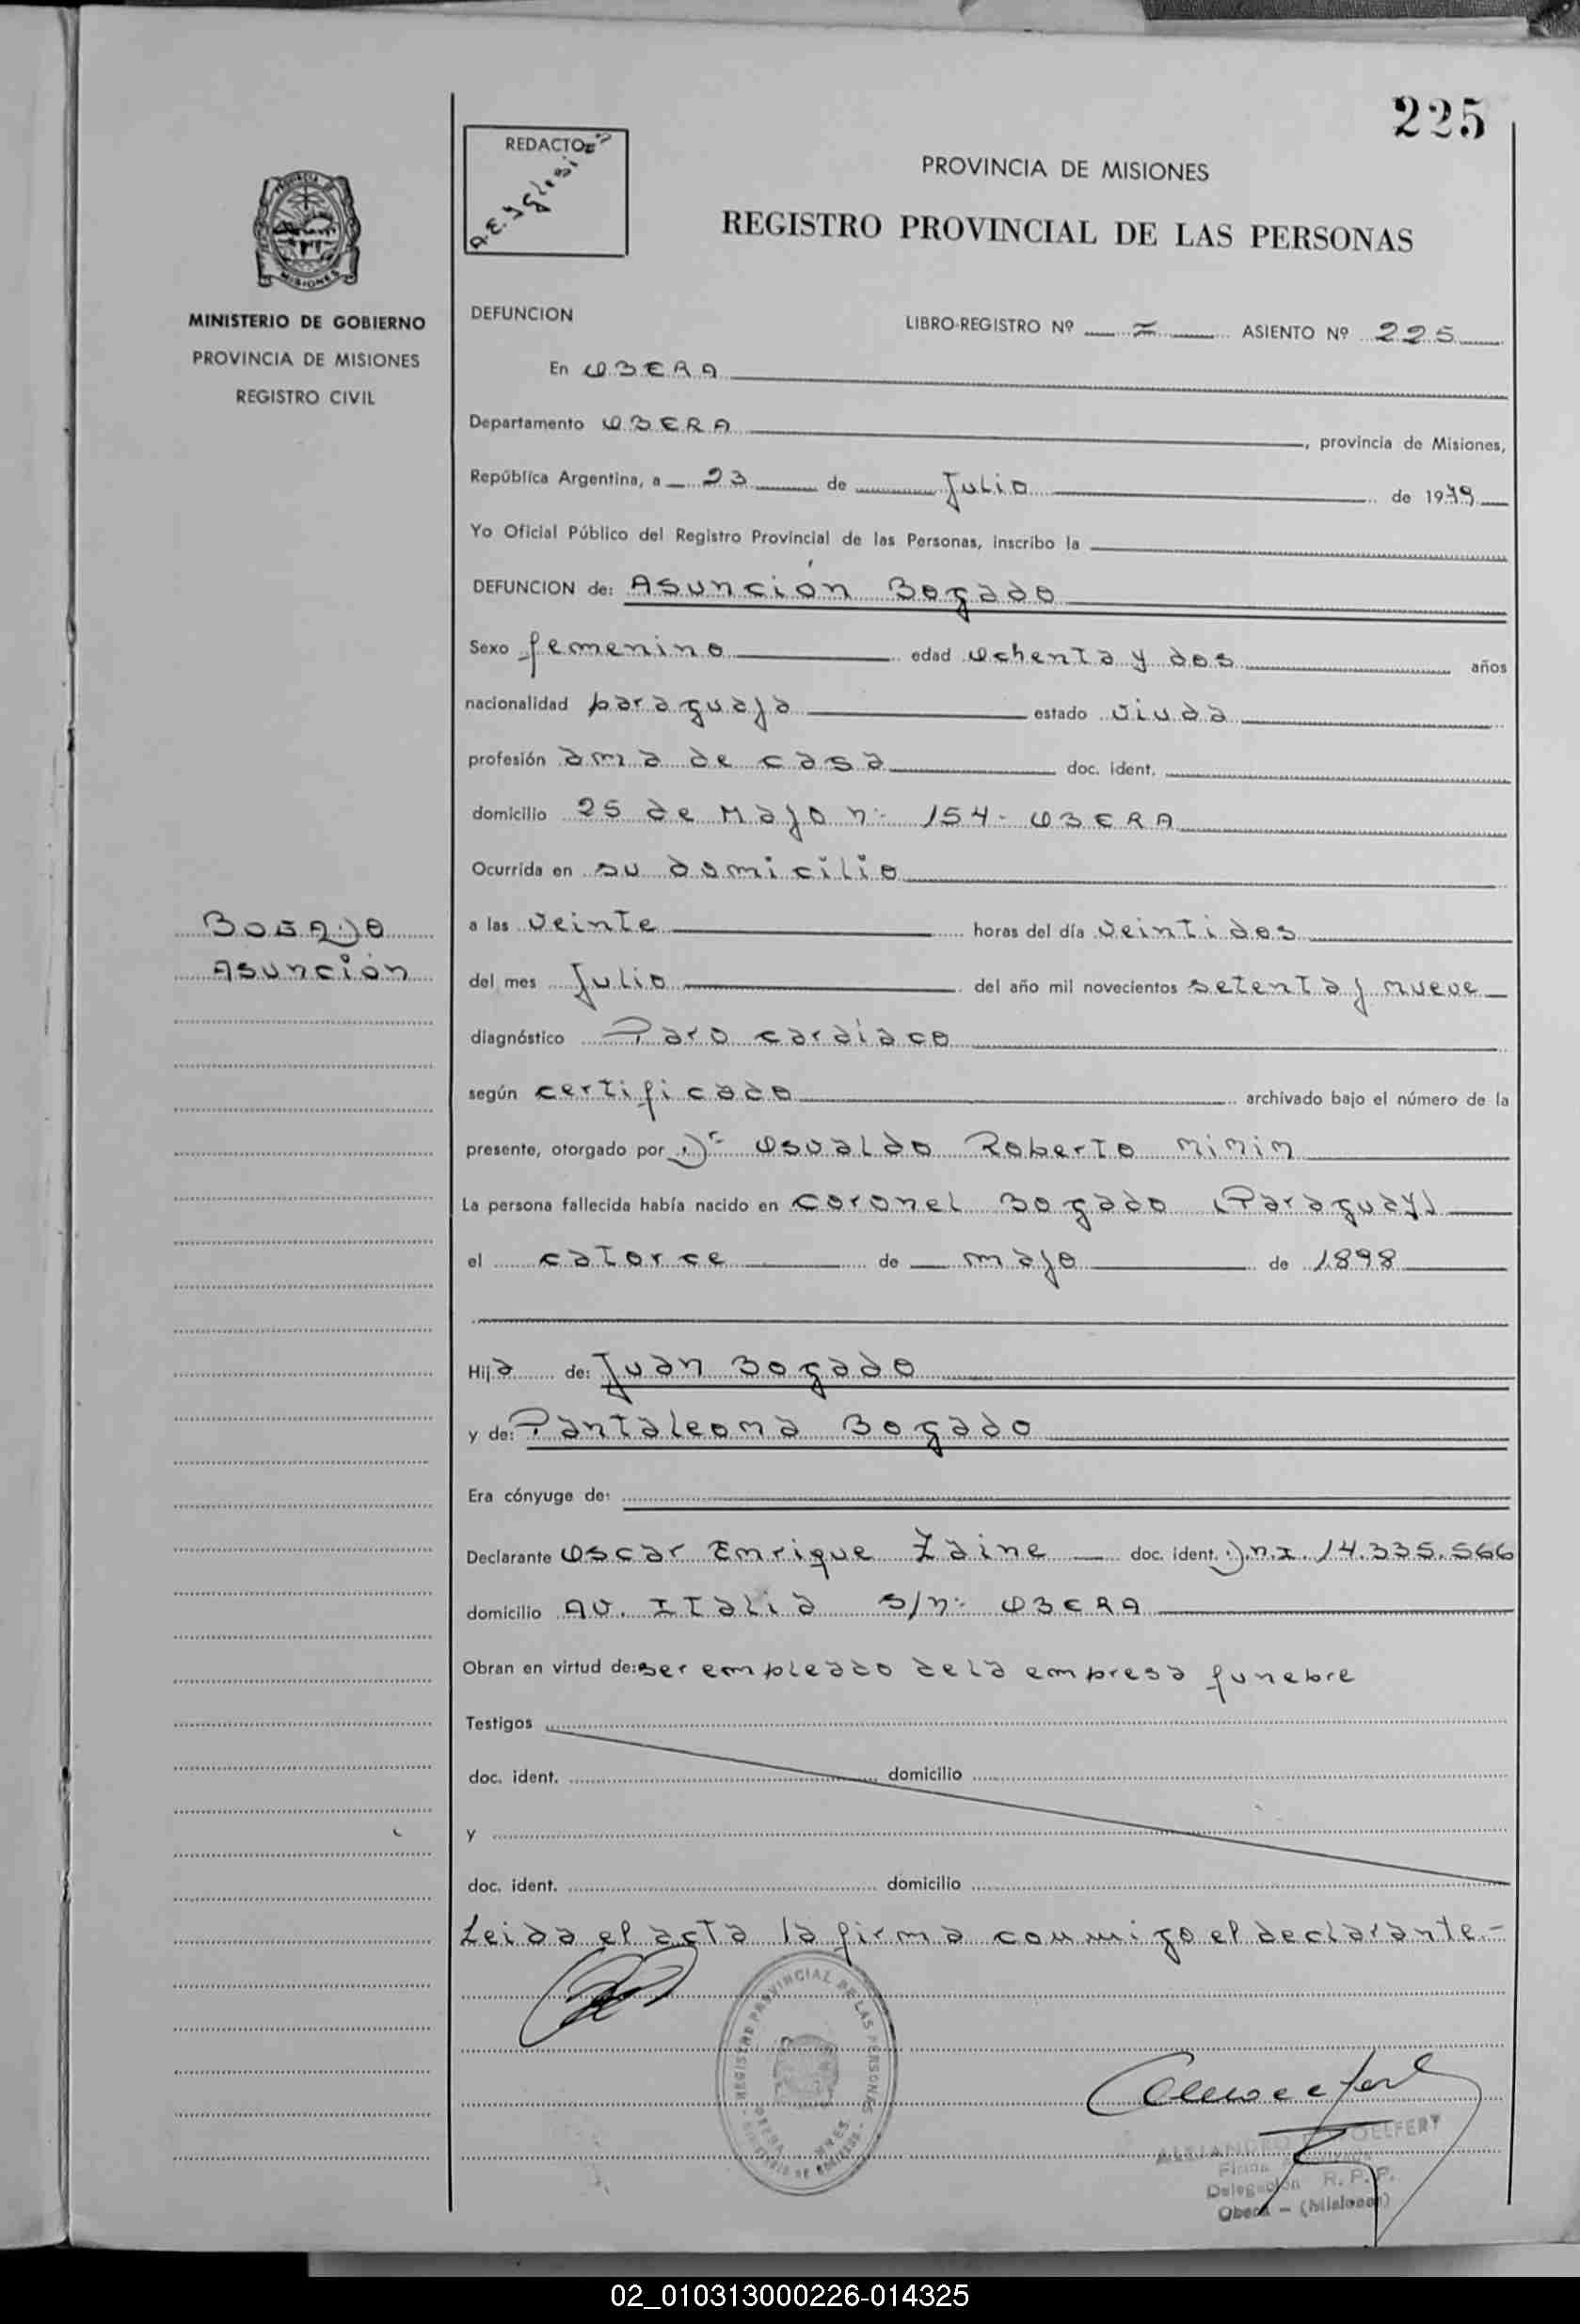 225
REDACTOR
A.E. Yglesi
PROVINCIA DE MISIONES
REGISTRO PROVINCIAL DE LAS PERSONAS
MINISTERIO DE GOBIERNO
PROVINCIA DE MISIONES
REGISTRO CIVIL
DEFUNCION
LIBRO-REGISTRO Nº ASIENTO Nº 225
En OBERA
Departamento OBERA, provincia de Misiones,
República Argentina, a 23 de Julio de 1979
Yo Oficial Público del Registro Provincial de las Personas, inscribo la
DEFUNCION de: Asunción Bogado
Sexo femenino edad ochenta y dos años
nacionalidad paraguaja estado viuda
profesión ama de casa doc. ident.
domicilio 25 de Majo nº 154- OBERA
Ocurrida en su domicilio
BOGADO
Asunción
a las veinte horas del día veintidos
del mes Julio del año mil novecientos setenta y nueve
diagnóstico Paro cardíaco
según certificado archivado bajo el número de la
presente, otorgado por Dr Osvaldo Roberto
La persona fallecida había nacido en coronel Bogado (Paraguay)
el catorce de majo de 1898
Hija de: Juan Bogado
y de: Pantaleona Bogado
Era cónyuge de:
Declarante Oscar Enrique Zaine doc. ident. D.n.I. 14.335.566
domicilio AV. ITalia s/nº OBERA
Obran en virtud de: ser empleado de la empresa funebre
Testigos
doc. ident. domicilio
y
doc. ident. domicilio
Leida el acta la firma conmigo el declarante.-
REGISTRO PROVINCIAL DE LAS PERSONAS
OBERA MNES
MINISTERIO DE GOBIERNO
ALEJANDRO OELFERT
Firma
Delegación R. P. P.
Obera - (Misiones)
02_010313000226-014325